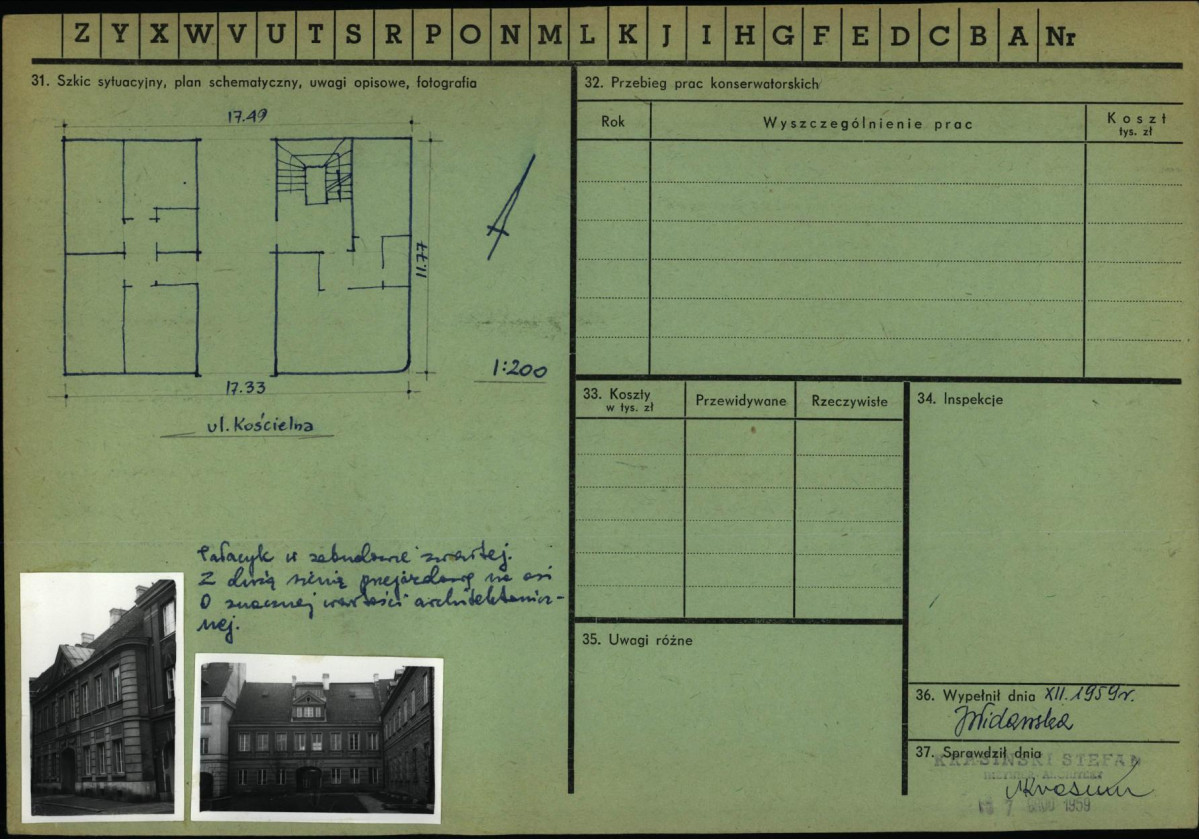 Z Y X W V U T S R P O N M L K J I H G F E D C B A Nr
31. Szkic sytuacyjny, plan schematyczny, uwagi opisowe, fotografia
17.49
11.77
1:200
17.33
ul. Kościelna
Pałacyk w zabudowie zwartej.
Z dużą sienią przejazdową na osi
O znacznej wartości architektonicz-
nej.
32. Przebieg prac konserwatorskich
Rok
Wyszczególnienie prac
Koszt
tys. zł
33. Koszty
w tys. zł
Przewidywane
Rzeczywiste
34. Inspekcje
35. Uwagi różne
36. Wypełnił dnia XII. 1959 r.
37. Sprawdził dnia
KRASIŃSKI STEFAN
1959